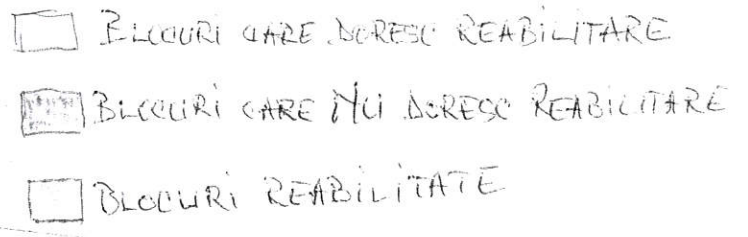 BLOCURI CARE DORESC REABILITARE
BLOCURI CARE NU DORESC REABILITARE
BLOCURI REABILITATE